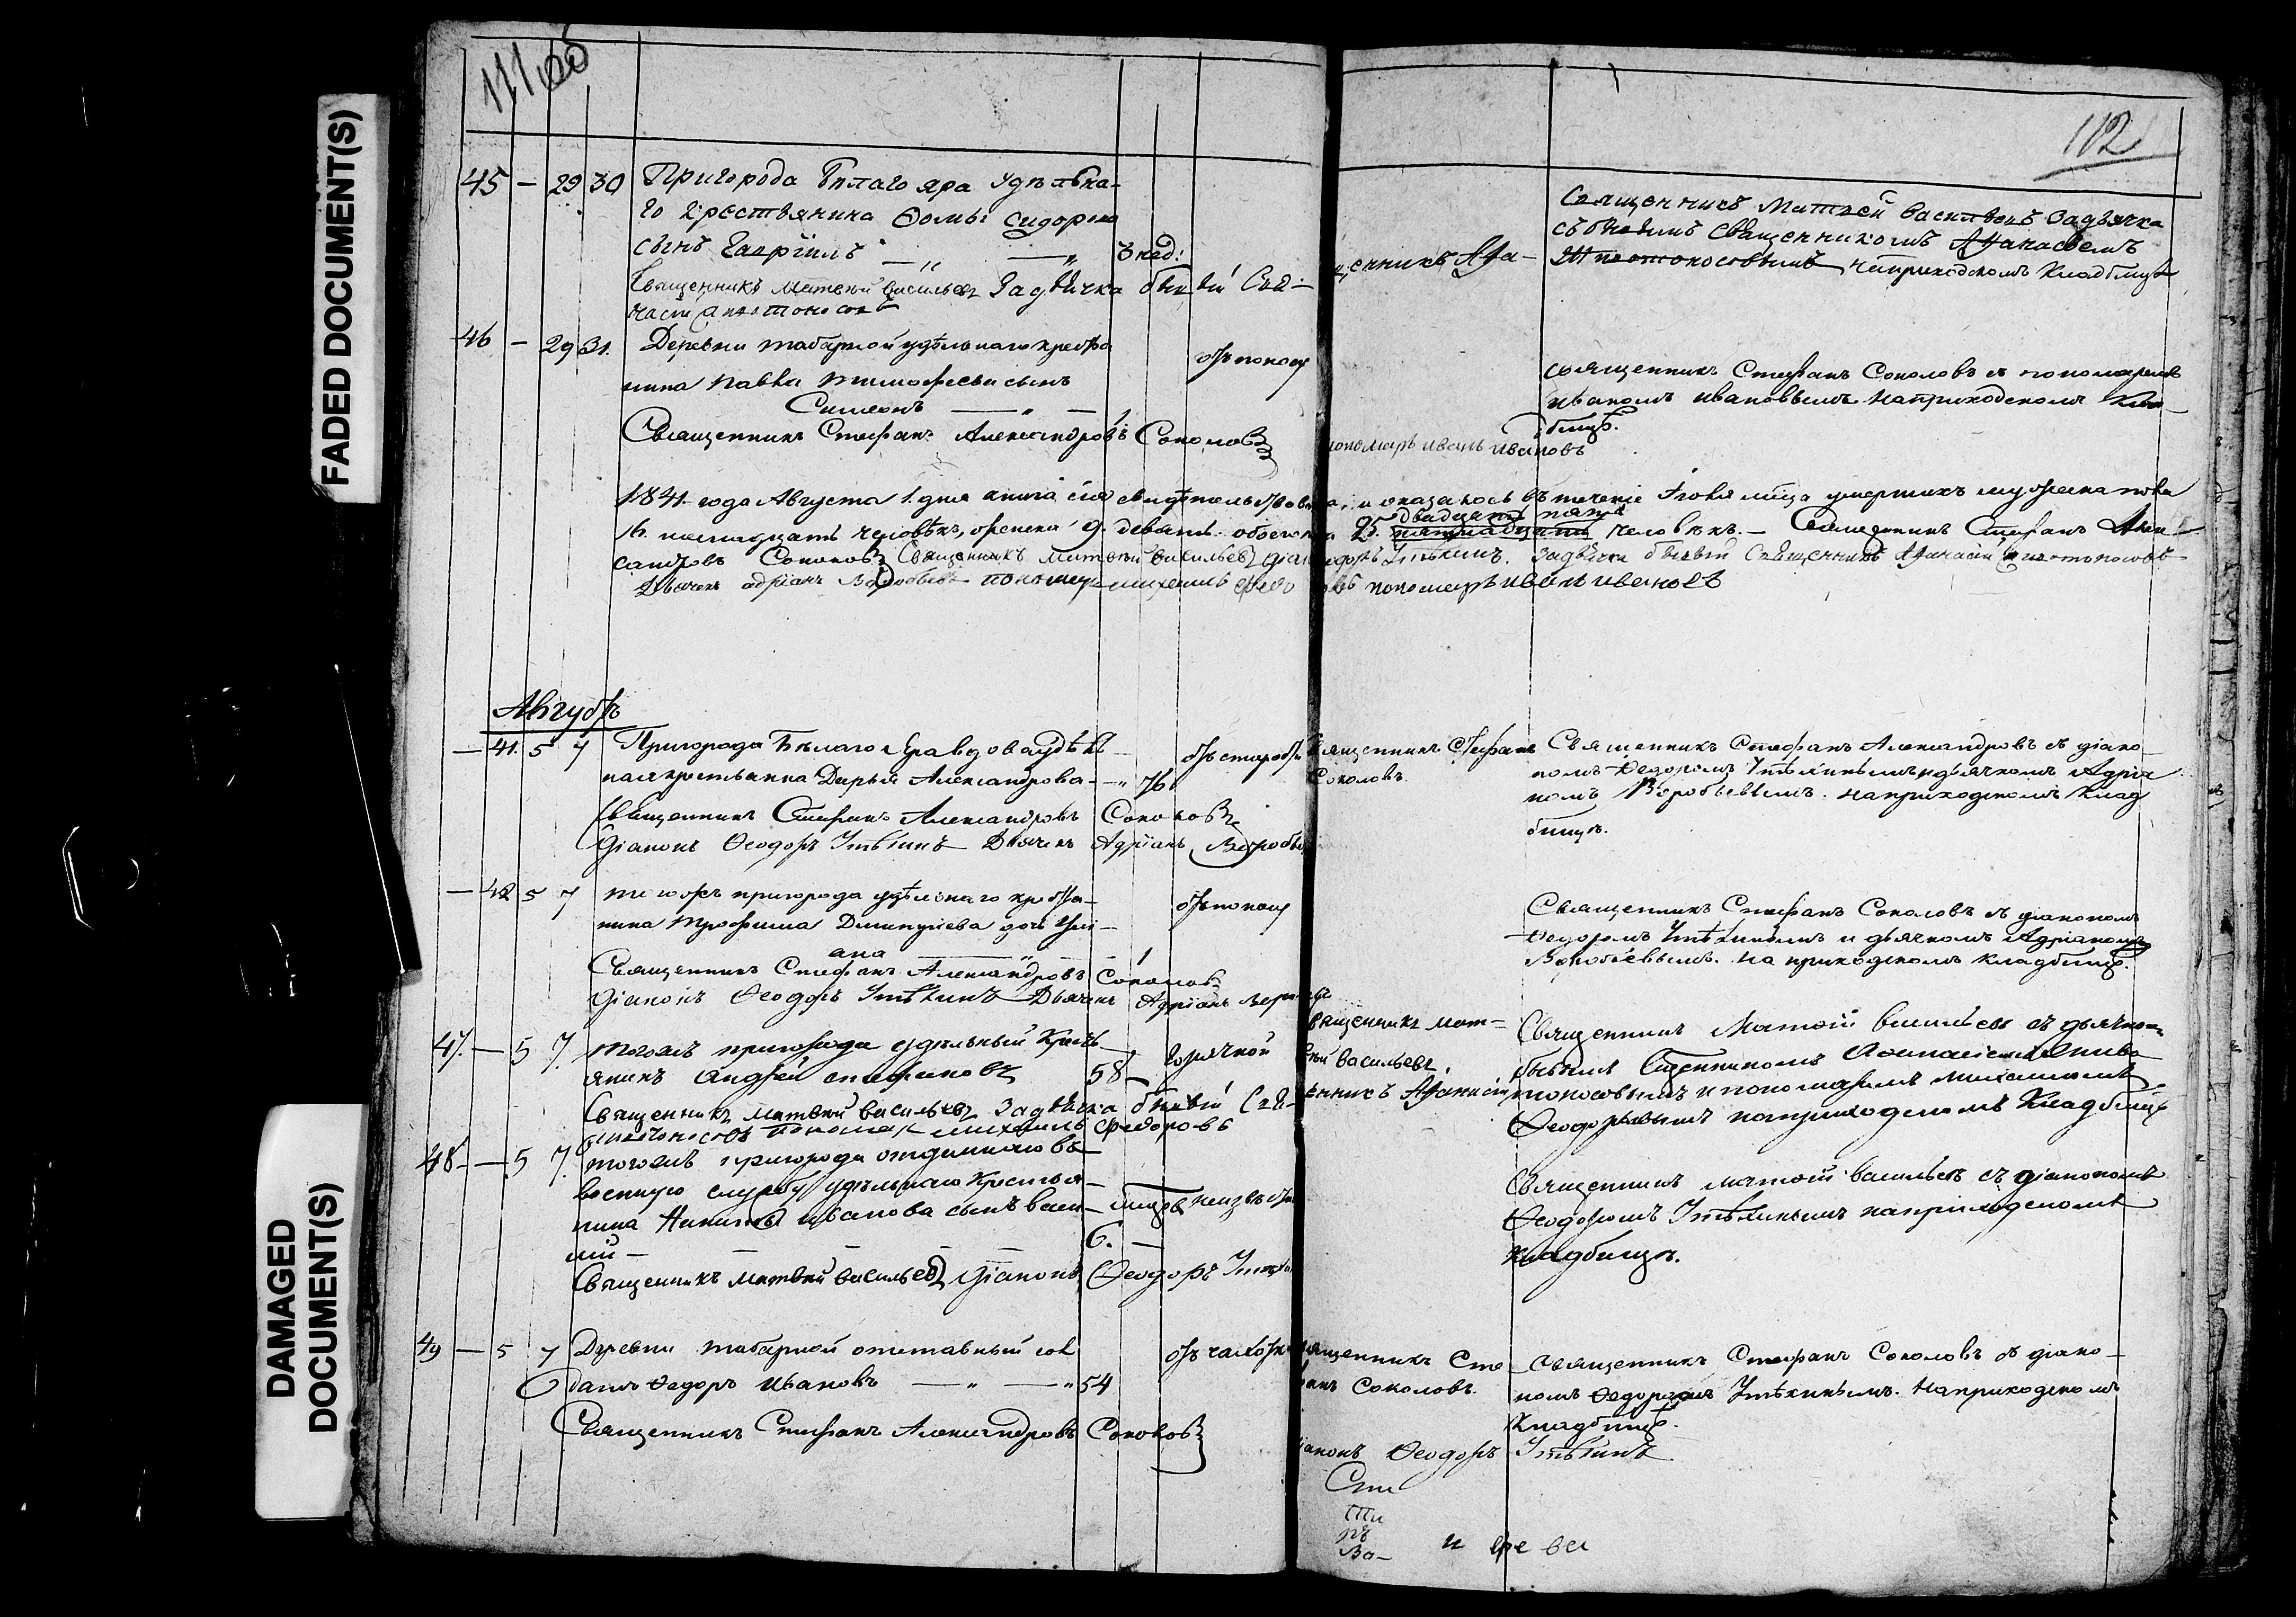 FADED DOCUMENT(S)
DAMAGED
DOCUMENT(S)
111
112
45 — 29 30 Пригорода Белаго яра удельна-
го крестьянина Фомы Сидорова
сынъ Гавріилъ — „ — „ 3 нед:
Священникъ Матвей Васильевъ Задьячка бывый Свя-
щенникъ Афа-
насій
Священникъ Матвей Васильевъ Задьячка
съ бывымъ Священникомъ Афанасьемъ
на приходскомъ кладбище
46 — 29 31. Деревни Табарной удѣльнаго крестья
нина Павла Тимофеева сынъ
Симеонъ — „ —
отъ поносу
Священникъ Стефанъ Александровъ Соколовъ
пономарь Иванъ Ивановъ
Священникъ Стефанъ Соколовъ съ пономаремъ
Иваномъ Ивановымъ. На приходскомъ клад-
бищѣ.
1841. года Августа 1. дня книга сія свидѣтельствована, и оказалось въ теченіе Іюля мца умершихъ мужеска пола
двадцать пять
16. шеснадцать человѣкъ, женска 9. девять. обоего 25. пятнадцать человѣкъ. — Священникъ Стефанъ Алек-
сандровъ Соколовъ Священникъ Матвей Васильевъ Діаконъ Феодоръ Утѣхинъ. Задьячка бывый Священникъ Афанасій
Дьячекъ Адріанъ Воробьевъ пономарь Михаилъ Федоровъ пономарь Иванъ Ивановъ
Августъ
— 41. 5 7 Пригорода Белаго Яра вдова удѣль
ная крестьянка Дарья Александрова — „ 76
отъ старости
Священникъ Стефанъ
Соколовъ.
Священникъ Стефанъ Александровъ Соколовъ
Діаконъ Феодоръ Утѣхинъ Дьячекъ Адріанъ Воробьевъ
Священникъ Стефанъ Александровъ съ діако-
номъ Федоромъ Утѣхинымъ и дьячкомъ Адріа
номъ Воробьевымъ. На приходскомъ клад
бищѣ.
— 42 5 7 того жъ пригорода удѣльнаго крестья-
нина Трофима Димитріева дочь Улі-
ана — „ —
отъ поносу
Священникъ Стефанъ Александровъ Соколовъ
Діаконъ Феодоръ Утѣхинъ Дьячекъ Адріанъ
Священникъ Стефанъ Соколовъ съ діакономъ
Федоромъ Утѣхинымъ и дьячкомъ Адріаномъ
Воробьевымъ. На приходскомъ кладбищѣ.
47. — 5 7. того жъ пригорода удѣльный Кресть-
янинъ Андрей Стефановъ 58 — горячкой
Священникъ Мат-
вей Васильевъ
Священникъ Матвей Васильевъ Задьячка бывый Свя-
щенникъ Афанасій
пономарь Михаилъ Федоровъ
Священникъ Матвей Васильевъ съ дьячкомъ
бывымъ Священникомъ Афанасіемъ
и пономаремъ Михаиломъ
Феодоровымъ на приходскомъ Кладбищѣ
48 — — 5 7. того жъ пригорода отданнаго въ
военную службу удѣльнаго Крестья-
нина Никиты Иванова сынъ Васи-
лій — — — — 6. —
неизвѣстно
Священникъ Матвей Васильевъ Діаконъ Феодоръ
Священникъ Матвей Васильевъ съ діакономъ
Феодоромъ Утѣхинымъ на приходскомъ
кладбищѣ.
49 — 5 7 Деревни Табарной отставный сол
датъ Федоръ Ивановъ — „ — „ 54
отъ чахотки
Священникъ Сте
фанъ Соколовъ.
Священникъ Стефанъ Александровъ Соколовъ
Діаконъ Феодоръ Утѣхинъ
Священникъ Стефанъ Соколовъ съ діако-
номъ Федоромъ Утѣхинымъ. На приходскомъ
Кладбищѣ.